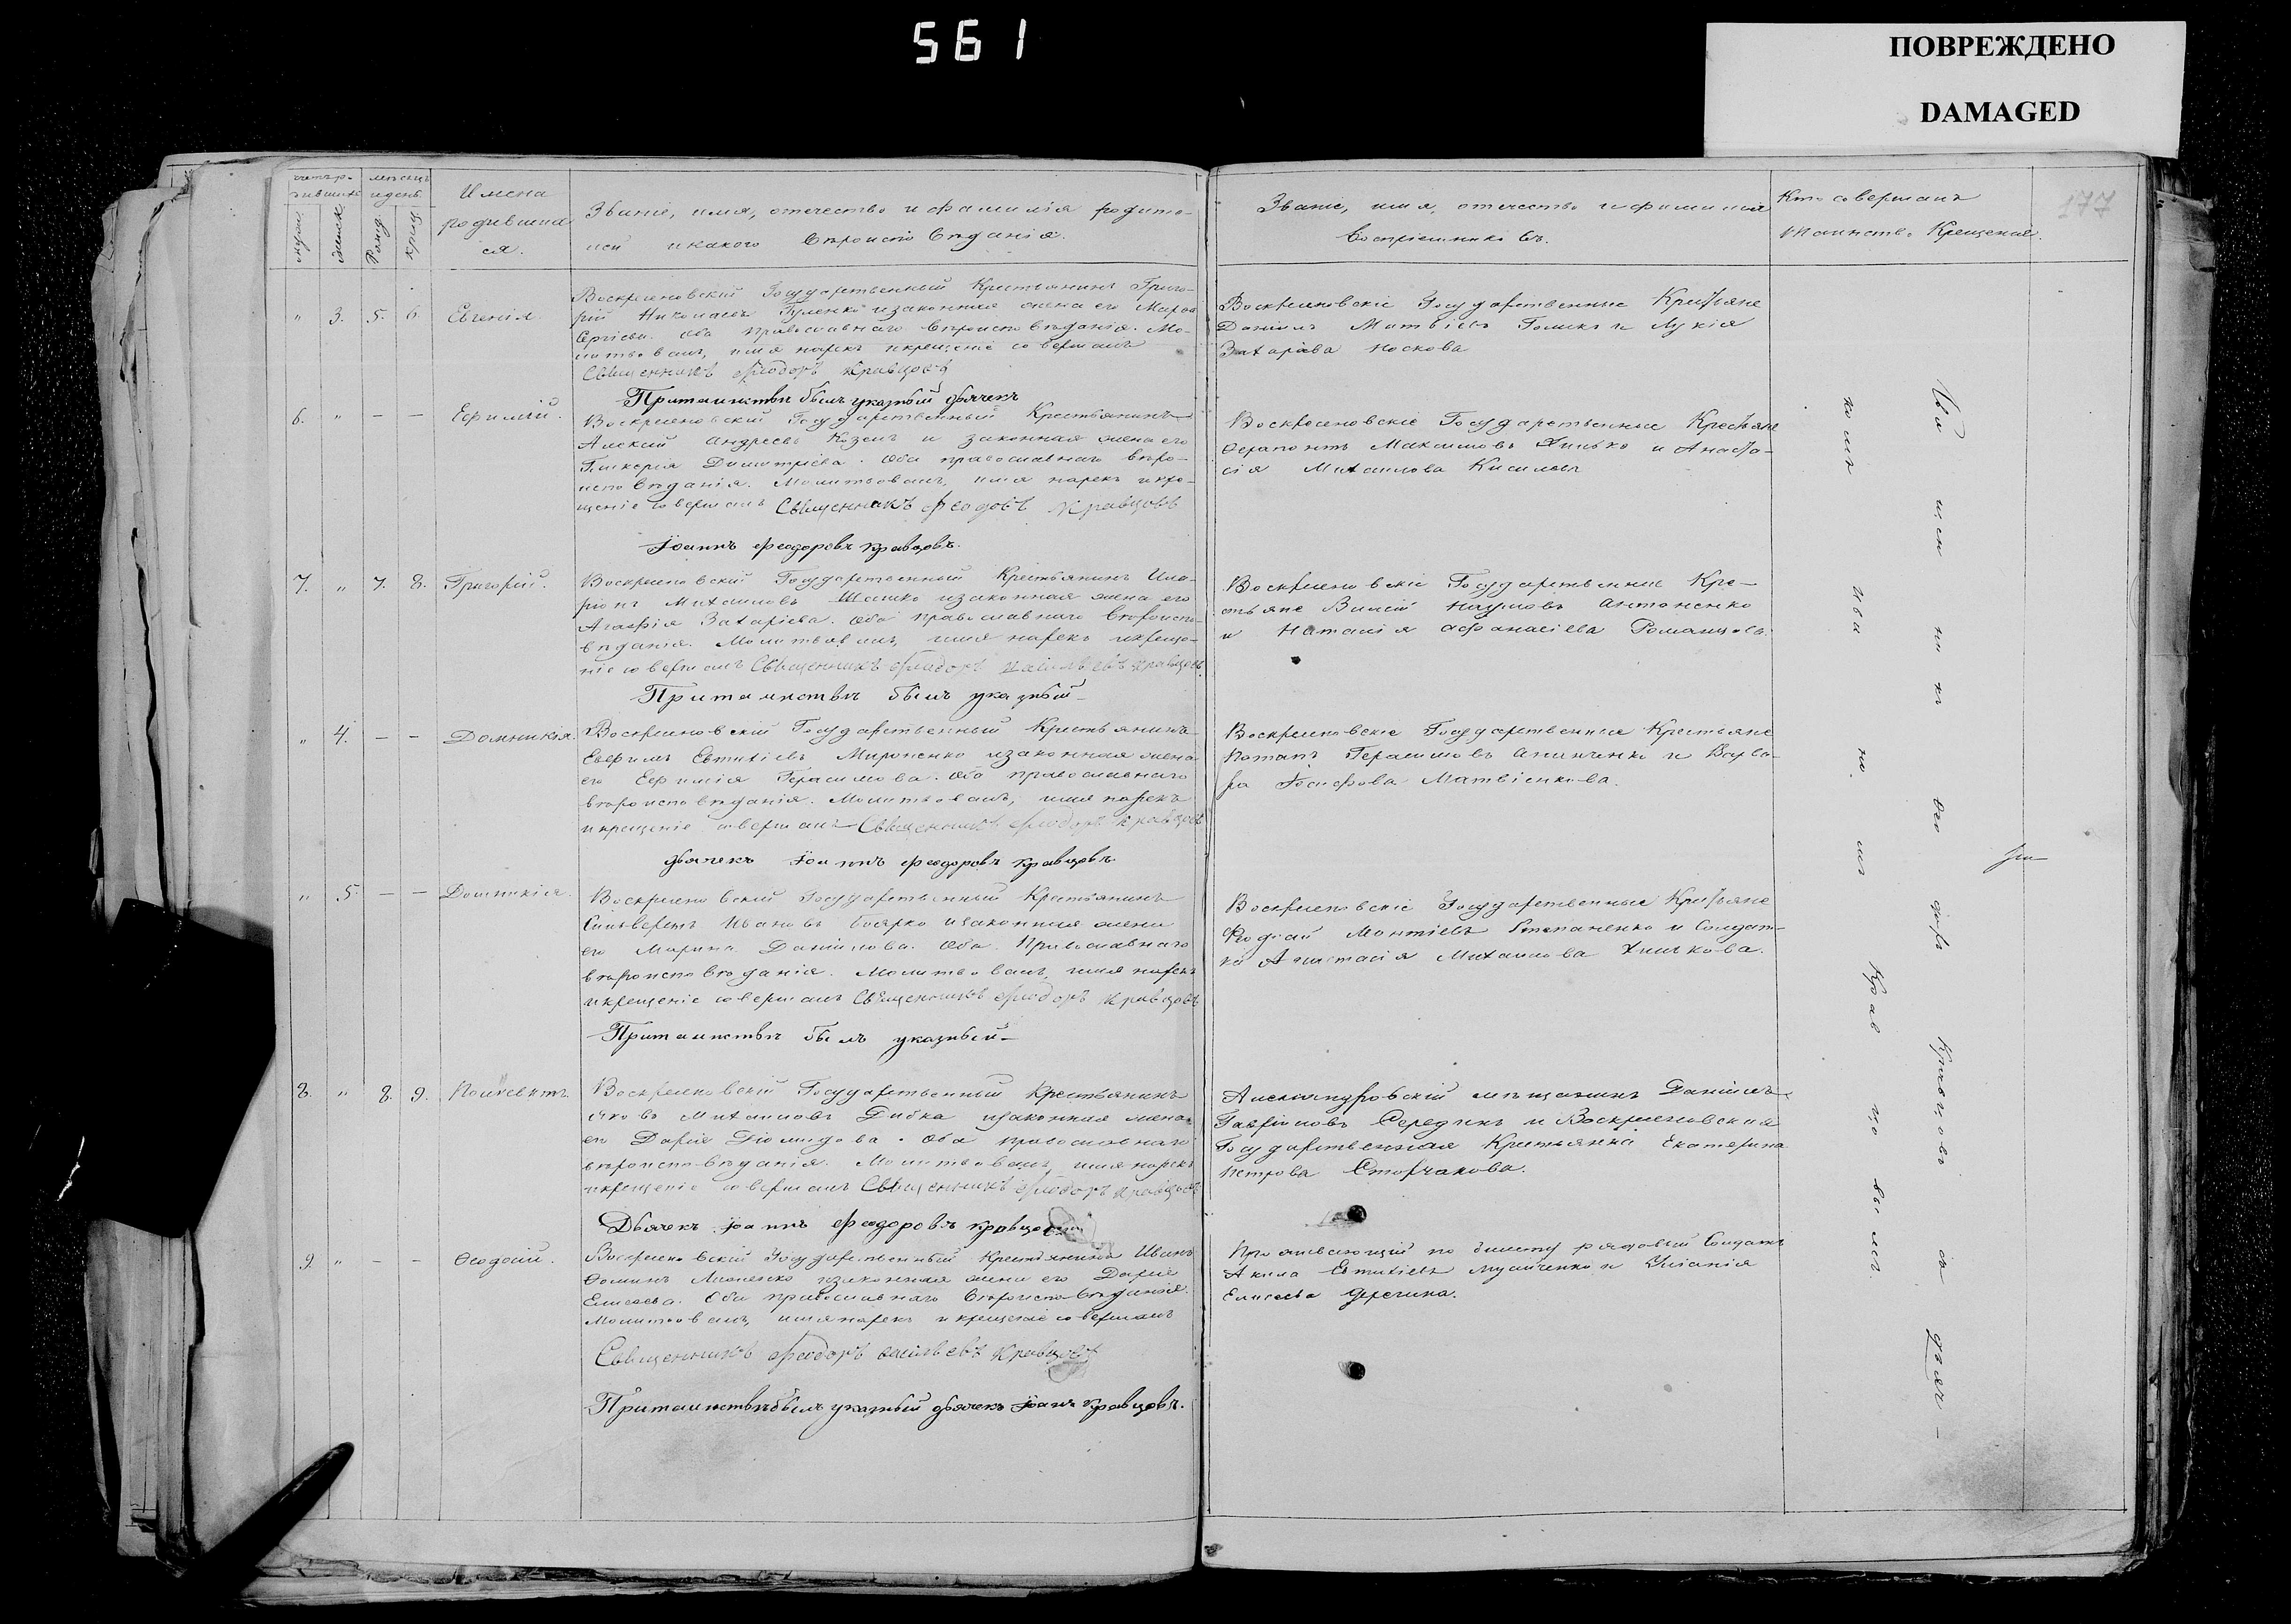 561
ПОВРЕЖДЕНО
DAMAGED
177
Имена
родивших
ся.
Званіе, имя, отечество и фамилія родите-
лей и какого вѣроисповѣданія.
Званіе, имя, отечество и фамилія
воспріемниковъ.
Кто совершалъ
таинство Крещенія.
" 3. 5. 6. Евгенія
Воскресеновскій Государственный Крестьянинъ Григо-
рій Николаевъ Гуленко и законная жена его
Сергіева. Оба православнаго вѣроисповѣданія. Мо-
литвовалъ, имя нарекъ и крещеніе совершалъ
Священникъ Феодоръ Кравцовъ
При таинствѣ былъ указный дьячекъ
Воскресеновскіе Государственные Крестьяне
Даніилъ Матвіевъ Голикъ и Лукія
Захаріева Носкова
6. " - - Ефимій.
Воскресеновскій Государственный Крестьянинъ
Алексій Андреевъ Козелъ и законная жена его
Гликерія Димитріева. Оба православнаго вѣро-
исповѣданія. Молитвовалъ, имя нарекъ и кре-
щеніе совершалъ Священникъ Феодоръ Кравцовъ
Іоаннъ Феодоровъ Кравцовъ.
Воскресеновскіе Государственные Крестьяне
Ѳерапонтъ Максимовъ Хилько и Анаста-
сія Михаилова
7. " 7. 8. Григорій.
Воскресеновскій Государственный Крестьянинъ Ила-
ріонъ Михаиловъ Шашко и законная жена его
Агафія Захаріева. Оба православнаго вѣроиспо-
вѣданія. Молитвовалъ, имя нарекъ и креще-
ніе совершалъ Священникъ Феодоръ Васильевъ Кравцовъ
При таинствѣ былъ указный-
Воскресеновскіе Государственные Кре-
стьяне Василій Наумовъ Антоненко
и Наталія Афанасіева Романцова.
" 4. - - Домникія.
Воскресеновскій Государственный Крестьянинъ
Евфимъ Евтихіевъ Мироненко и законная жена
его Ефимія Герасимова. Оба православнаго
вѣроисповѣданія. Молитвовалъ, имя нарекъ
и крещеніе совершалъ Священникъ Феодоръ Кравцовъ
дьячекъ Іоаннъ Феодоровъ Кравцовъ.
Воскресеновскіе Государственные Крестьяне
Потапъ Герасимовъ и Варва-
ра Іосифова Матвіенкова.
" 5. - - Домникія.
Воскресеновскій Государственный Крестьянинъ
Сильвестръ Ивановъ Боярко и законная жена
его Марина Даніилова. Оба Православнаго
вѣроисповѣданія. Молитвовалъ, имя нарекъ
и крещеніе совершалъ Священникъ Феодоръ Кравцовъ
При таинствѣ былъ указный-
Воскресеновскіе Государственные Крестьяне
Степаненко и Солдат-
ка Анастасія Михаилова Хилькова.
8. " 8. 9. Поліевктъ.
Воскресеновскій Государственный Крестьянинъ
Яковъ Михаиловъ Дибка и законная жена
его Дарія Діомидова. Оба православнаго
вѣроисповѣданія. Молитвовалъ, имя нарекъ
и крещеніе совершалъ Священникъ Феодоръ Кравцовъ
Дьячекъ Іоаннъ Феодоровъ Кравцовъ
Александровскій мѣщанинъ Даніилъ
Гавріиловъ Середин и Воскресеновская
Государственная Крестьянка Екатерина
Петрова Сторчакова.
9. " - - Ѳеодосій.
Воскресеновскій Государственный Крестьянинъ Иванъ
Ѳоминъ и законная жена его Дарія
Елисеева. Оба православнаго вѣроисповѣданія.
Молитвовалъ, имя нарекъ и крещеніе совершалъ
Священникъ Феодоръ Васильевъ Кравцовъ
При таинствѣ былъ указный дьячекъ Іоаннъ Кравцовъ.
по билету рядовый Солдатъ
Акила Евтихіевъ и
Елисеева Дрегина.
Свя щен ни къ Ѳео доръ Кравцовъ съ дьяч-
комъ Ива но мъ Крав цо вы мъ.